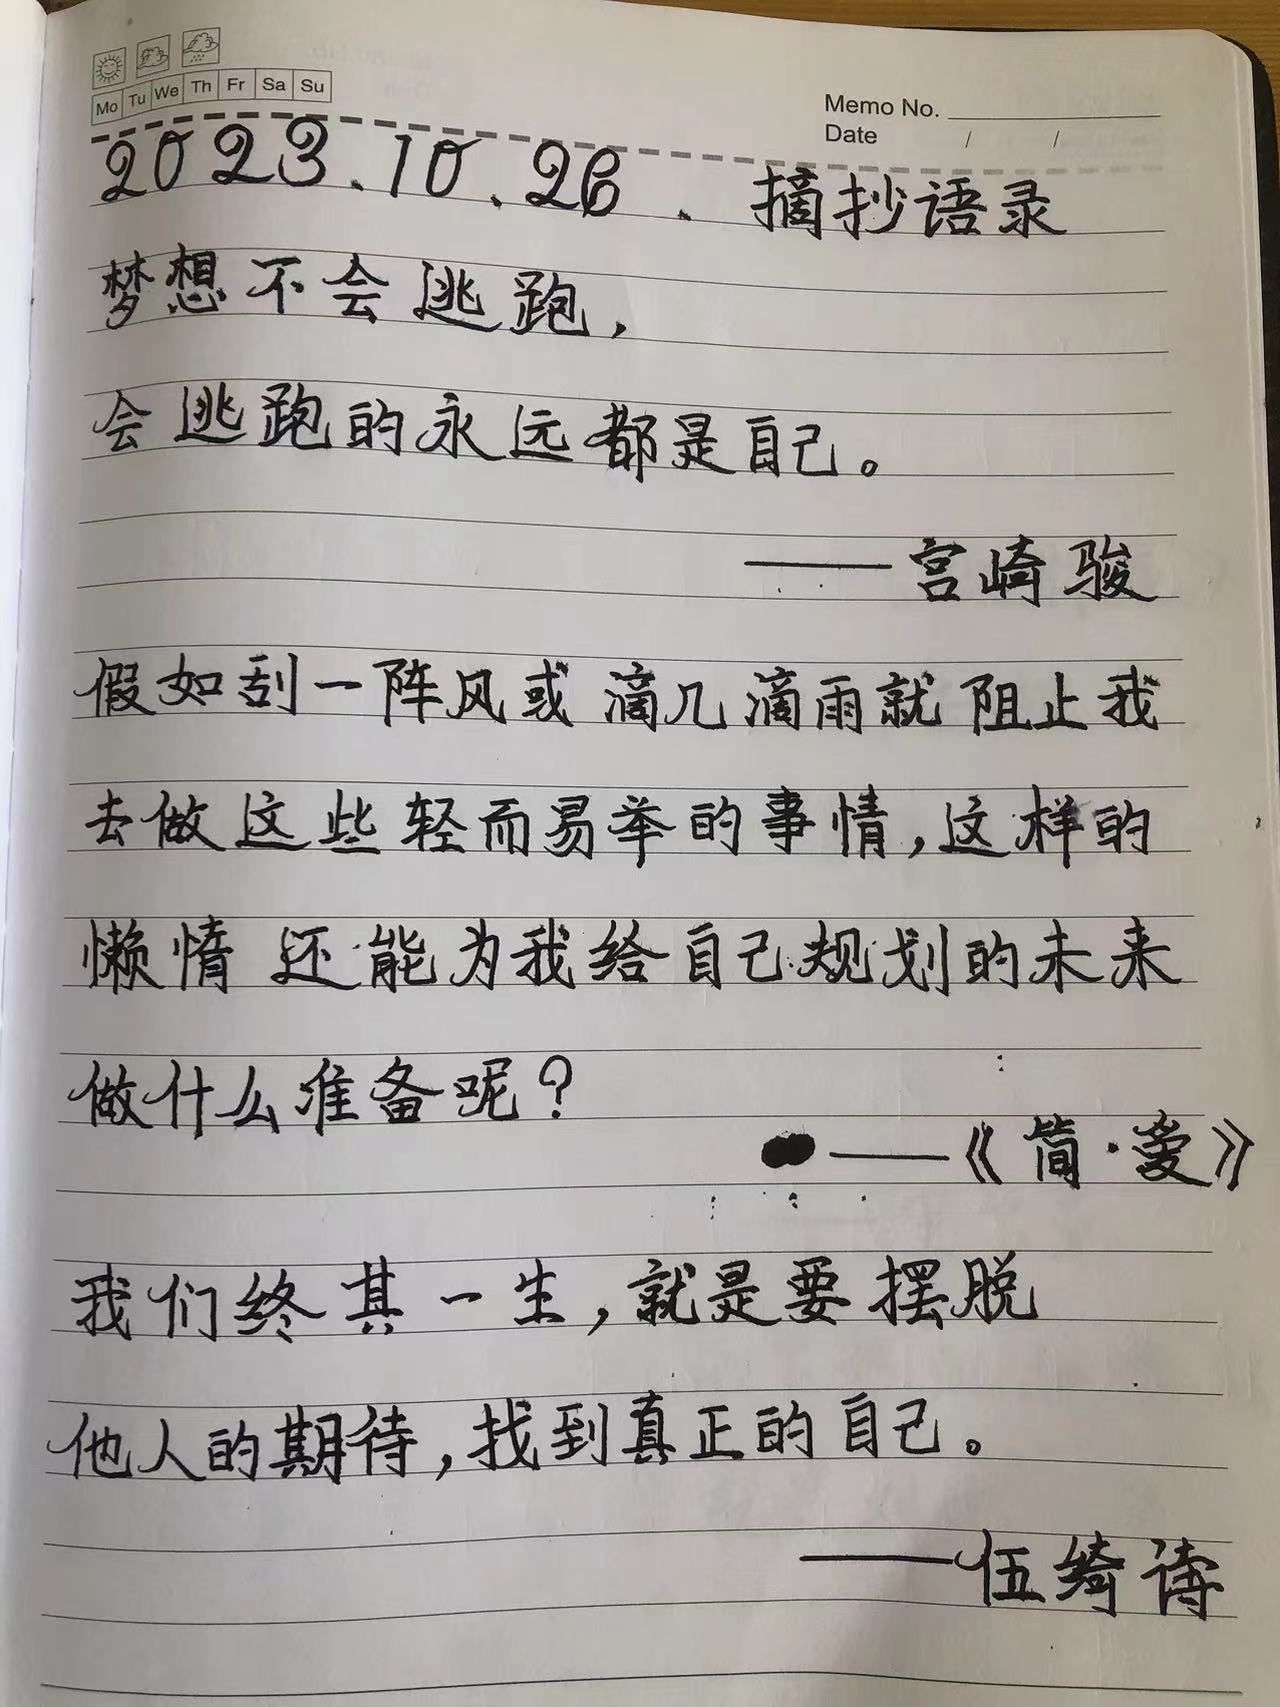 Mo Tu We Th Fr Sa Su
Memo No.
Date / /
2023.10.26. 摘抄语录
梦想不会逃跑,
会逃跑的永远都是自己。
——宫崎骏
假如刮一阵风或滴几滴雨就阻止我
去做这些轻而易举的事情,这样的
懒惰还能为我给自己规划的未来
做什么准备呢?
——《简·爱》
我们终其一生,就是要摆脱
他人的期待,找到真正的自己。
——伍绮诗